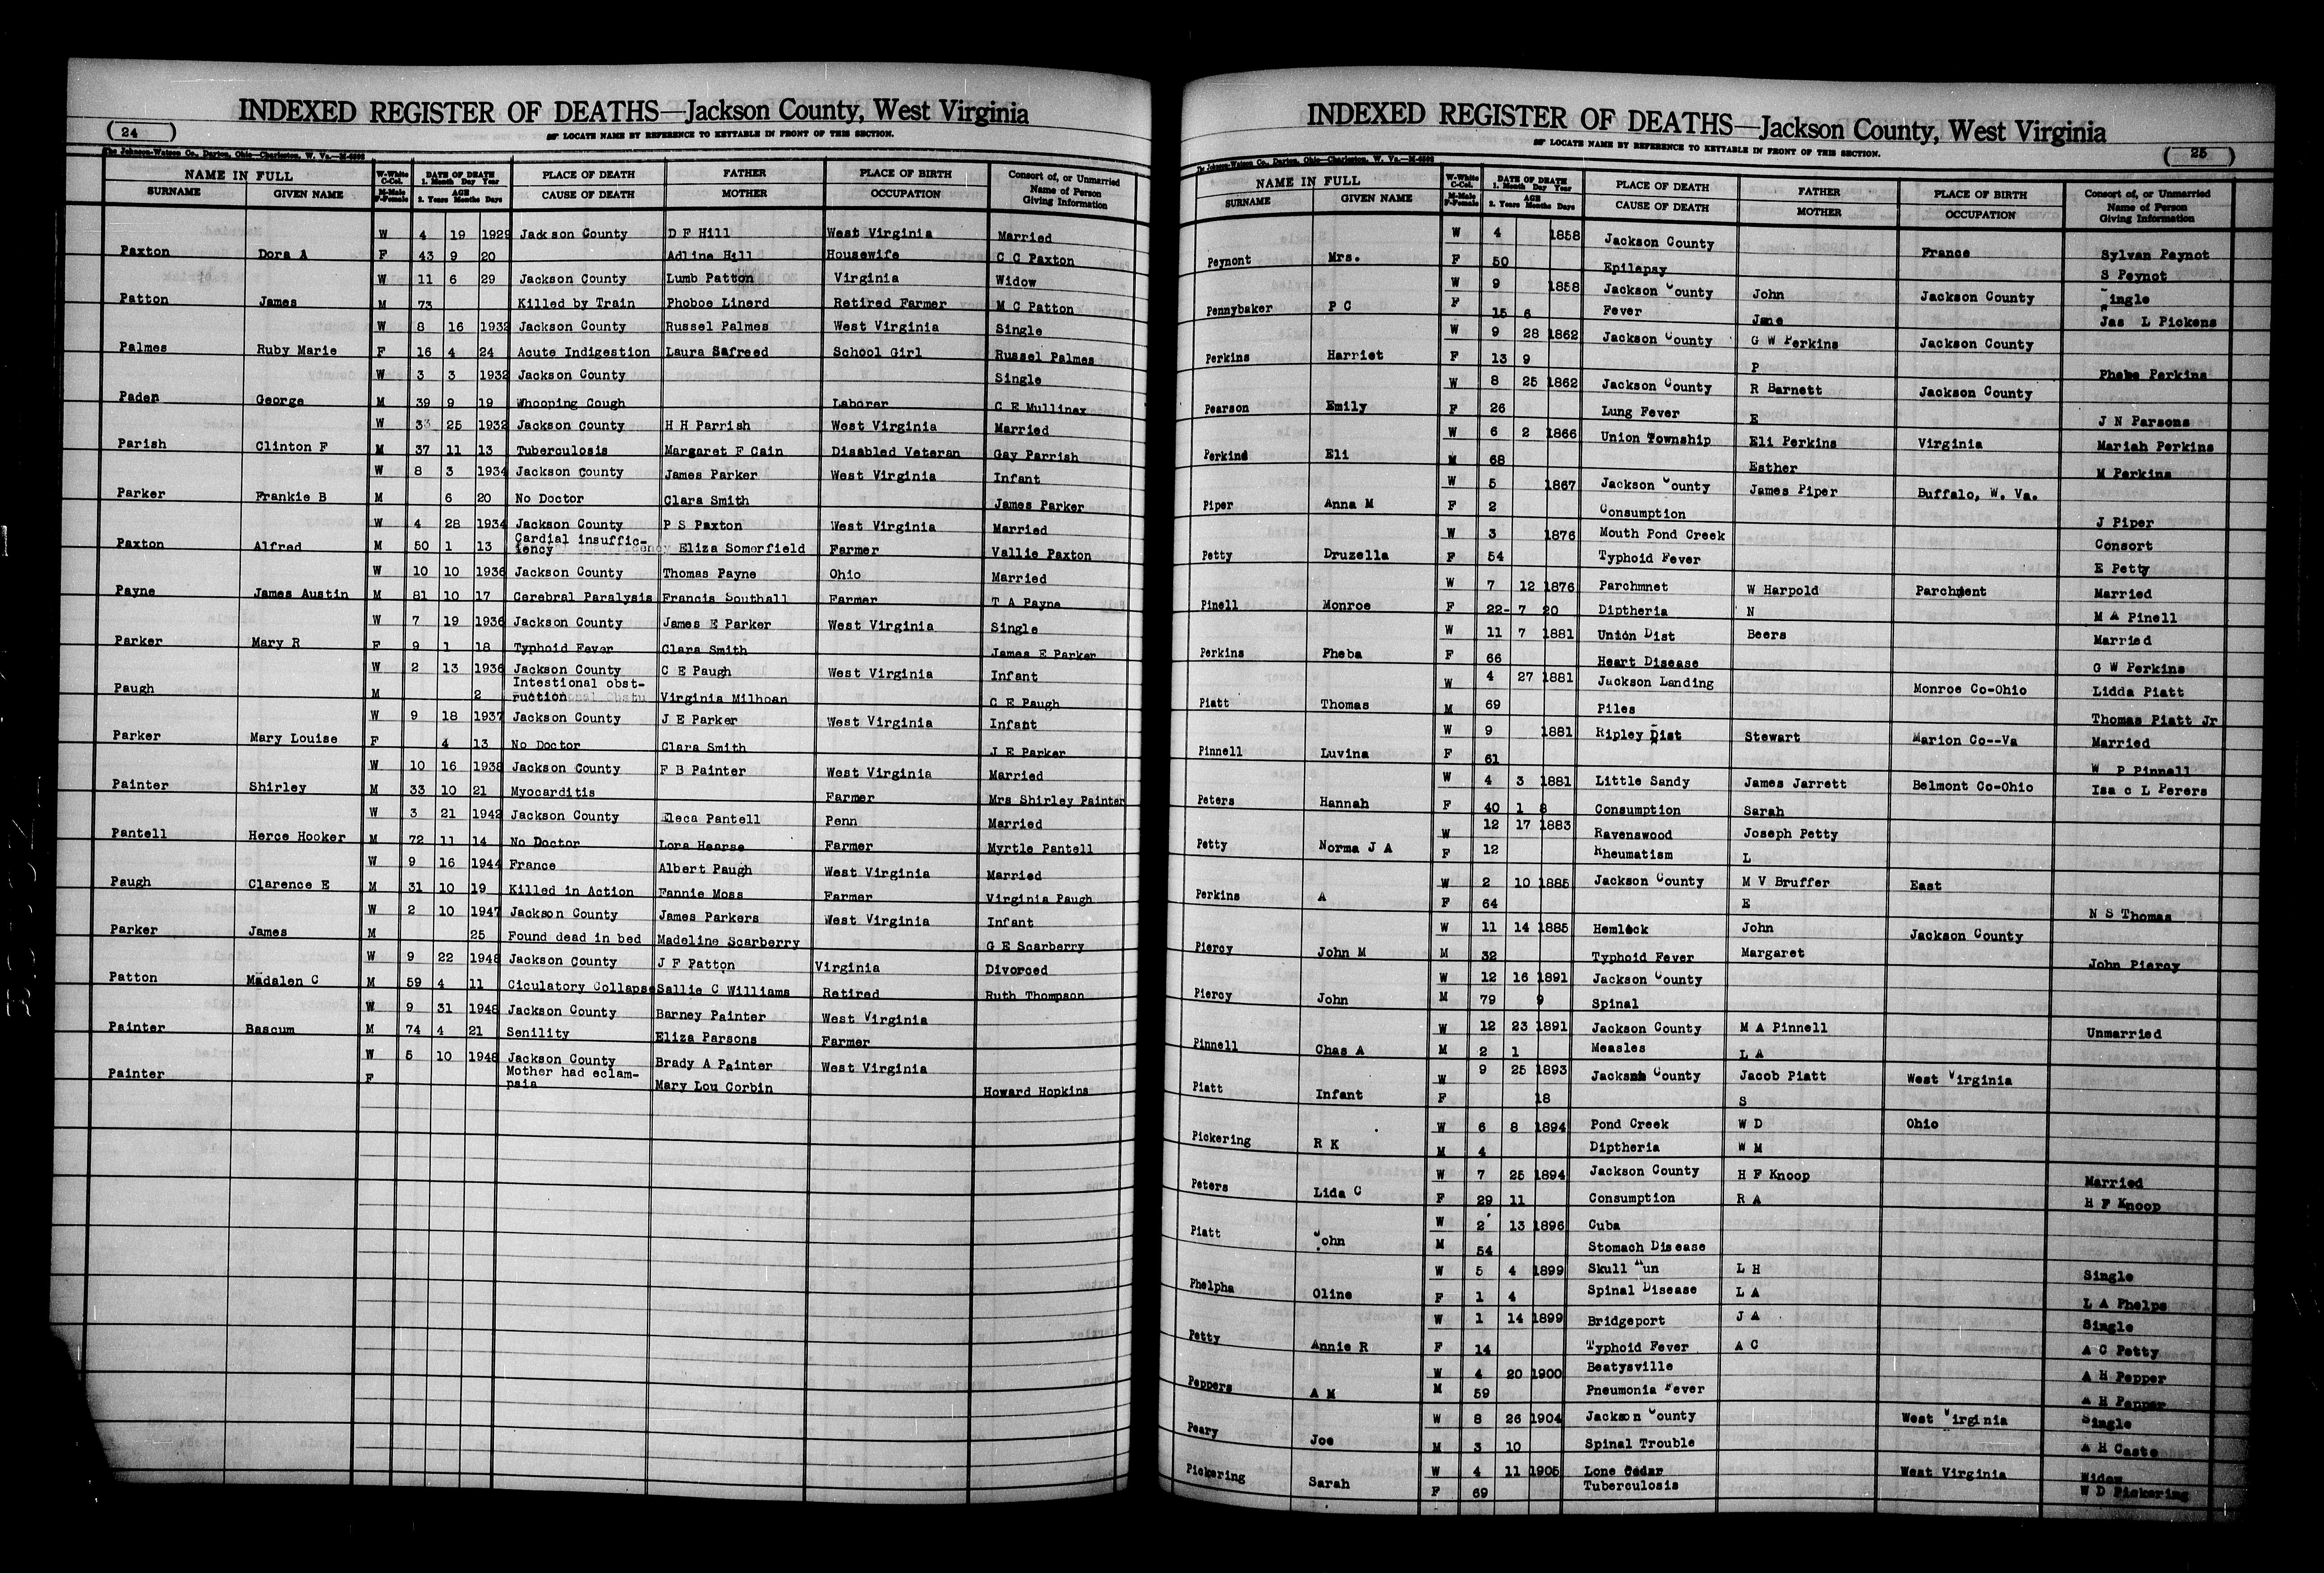 INDEXED REGISTER OF DEATHS—Jackson County, West Virginia
( 24 )
☞ LOCATE NAME BY REFERENCE TO KEYTABLE IN FRONT OF THIS SECTION.
The Johnson-Watson Co., Dayton, Ohio—Charleston, W. Va.—M-6503
NAME IN FULL W-White C-Col. DATE OF DEATH 1. Month Day Year PLACE OF DEATH FATHER PLACE OF BIRTH Consort of, or Unmarried
SURNAME GIVEN NAME M-Male F-Female AGE 2. Years Months Days CAUSE OF DEATH MOTHER OCCUPATION Name of Person Giving Information
W 4 19 1929 Jackson County D F Hill West Virginia Married
Paxton Dora A F 43 9 20 Adline Hill Housewife C C Paxton
W 11 6 29 Jackson County Lumb Patton Virginia Widow
Patton James M 73 Killed by Train Phoboe Linerd Retired Farmer M C Patton
W 8 16 1932 Jackson County Russel Palmes West Virginia Single
Palmes Ruby Marie F 16 4 24 Acute Indigestion Laura Safreed School Girl Russel Palmes
W 3 3 1932 Jackson County Single
Paden George M 39 9 19 Whooping Cough Laborer C E Mullinax
W 33 25 1932 Jackson County H H Parrish West Virginia Married
Parish Clinton F M 37 11 13 Tuberculosis Margaret F Cain Disabled Veteran Gay Parrish
W 8 3 1934 Jackson County James Parker West Virginia Infant
Parker Frankie B M 6 20 No Doctor Clara Smith James Parker
W 4 28 1934 Jackson County P S Paxton West Virginia Married
Paxton Alfred M 50 1 13 Cardial insuffic-
iency Eliza Somerfield Farmer Vallie Paxton
W 10 10 1936 Jackson County Thomas Payne Ohio Married
Payne James Austin M 81 10 17 Cerebral Paralysis Francis Southall Farmer T A Payne
W 7 19 1936 Jackson County James E Parker West Virginia Single
Parker Mary R F 9 1 18 Typhoid Fever Clara Smith James E Parker
W 2 13 1936 Jackson County C E Paugh West Virginia Infant
Paugh M 2 Intestional obst-
ruction Virginia Milhoan C E Paugh
W 9 18 1937 Jackson County J E Parker West Virginia Infant
Parker Mary Louise F 4 13 No Doctor Clara Smith J E Parker
W 10 16 1938 Jackson County F B Painter West Virginia Married
Painter Shirley M 33 10 21 Myocarditis Farmer Mrs Shirley Painter
W 3 21 1942 Jackson County Eleca Pantell Penn Married
Pantell Herce Hooker M 72 11 14 No Doctor Lora Hearse Farmer Myrtle Pantell
W 9 16 1944 France Albert Paugh West Virginia Married
Paugh Clarence E M 31 10 19 Killed in Action Fannie Moss Farmer Virginia Paugh
W 2 10 1947 Jackson County James Parkers West Virginia Infant
Parker James M 25 Found dead in bed Madeline Scarberry G E Scarberry
W 9 22 1948 Jackson County J F Patton Virginia Divorced
Patton Madalen C M 59 4 11 Ciculatory Collapse Sallie C Williams Retired Ruth Thompson
W 9 31 1948 Jackson County Barney Painter West Virginia
Painter Bascum M 74 4 21 Senility Eliza Parsons Farmer
W 5 10 1948 Jackson County Brady A Painter West Virginia
Painter F Mother had eclam-
psia Mary Lou Corbin Howard Hopkins
INDEXED REGISTER OF DEATHS—Jackson County, West Virginia
☞ LOCATE NAME BY REFERENCE TO KEYTABLE IN FRONT OF THIS SECTION.
( 25 )
The Johnson-Watson Co., Dayton, Ohio—Charleston, W. Va.—M-6503
NAME IN FULL W-White C-Col. DATE OF DEATH 1. Month Day Year PLACE OF DEATH FATHER PLACE OF BIRTH Consort of, or Unmarried
SURNAME GIVEN NAME M-Male F-Female AGE 2. Years Months Days CAUSE OF DEATH MOTHER OCCUPATION Name of Person Giving Information
W 4 1858 Jackson County France Sylvan Paynot
Peynont Mrs. F 50 Epilepsy S Peynot
W 9 1858 Jackson County John Jackson County Single
Pennybaker P C F 15 6 Fever Jane Jas L Pickens
W 9 28 1862 Jackson County G W Perkins Jackson County
Perkins Harriet F 13 9 P Phebe Perkins
W 8 25 1862 Jackson County R Barnett Jackson County
Pearson Emily F 26 Lung Fever E J N Parsons
W 6 2 1866 Union Township Eli Perkins Virginia Mariah Perkins
Perkins Eli M 68 Esther M Perkins
W 5 1867 Jackson County James Piper Buffalo, W. Va.
Piper Anna M F 2 Consumption J Piper
W 3 1876 Mouth Pond Creek Consort
Petty Druzella F 54 Typhoid Fever E Petty
W 7 12 1876 Parchmnet W Harpold Parchment Married
Pinell Monroe F 22- 7 20 Diptheria N M A Pinell
W 11 7 1881 Union Dist Beers Married
Perkins Pheba F 66 Heart Disease G W Perkins
W 4 27 1881 Jackson Landing Monroe Co-Ohio Lidda Piatt
Piatt Thomas M 69 Piles Thomas Piatt Jr
W 9 1881 Ripley Dist Stewart Marion Co--Va Married
Pinnell Luvina F 61 W P Pinnell
W 4 3 1881 Little Sandy James Jarrett Belmont Co-Ohio Isa c L Perers
Peters Hannah F 40 1 8 Consumption Sarah
W 12 17 1883 Ravenswood Joseph Petty
Petty Norma J A F 12 Rheumatism L
W 2 10 1885 Jackson County M V Bruffer East
Perkins A F 64 E N S Thomas
W 11 14 1885 Hemlock John Jackson County
Piercy John M M 32 Typhoid Fever Margaret John Piercy
W 12 16 1891 Jackson County
Piercy John M 79 9 Spinal
W 12 23 1891 Jackson County M A Pinnell Unmarried
Pinnell Chas A M 2 1 Measles L A
W 9 25 1893 Jackson County Jacob Piatt West Virginia
Piatt Infant F 18 S
W 6 8 1894 Pond Creek W D Ohio
Pickering R K M 4 Diptheria W M
W 7 25 1894 Jackson County H F Knoop Married
Peters Lida C F 29 11 Consumption R A H F Knoop
W 2 13 1896 Cuba
Piatt John M 54 Stomach Disease
W 5 4 1899 Skull Run L H Single
Phelpha Oline F 1 4 Spinal Disease L A L A Phelps
W 1 14 1899 Bridgeport J A Single
Petty Annie R F 14 Typhoid Fever A C A C Petty
W 4 20 1900 Beatysville A H Pepper
Peppers A M M 59 Pneumonia Fever A H Pepper
W 8 26 1904 Jackson County West Virginia Single
Peary Joe M 3 10 Spinal Trouble A H Caste
W 4 11 1905 Lone Cedar West Virginia Widow
Pickering Sarah F 69 Tuberculosis W D Pickering